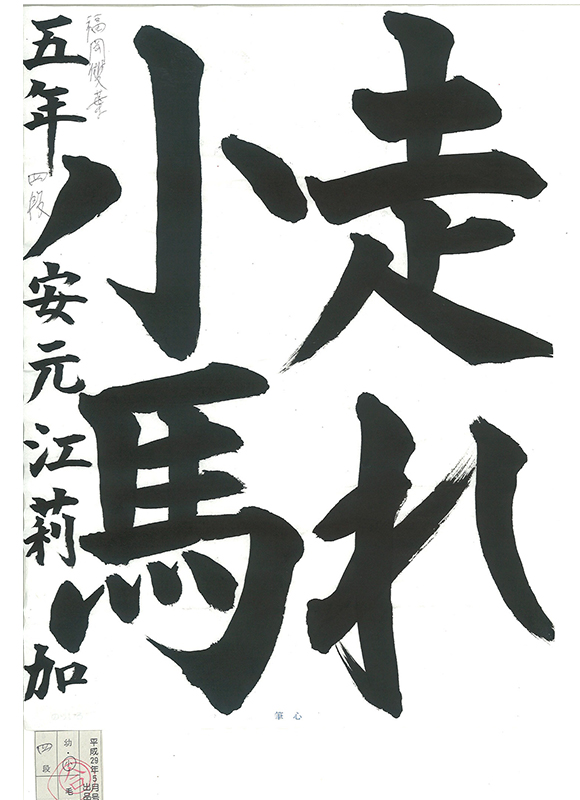 走れ
小馬
福岡雙葉
五年 安元江莉加
四段
心筆
平成29年5月号
出品
幼・小・毛
四段